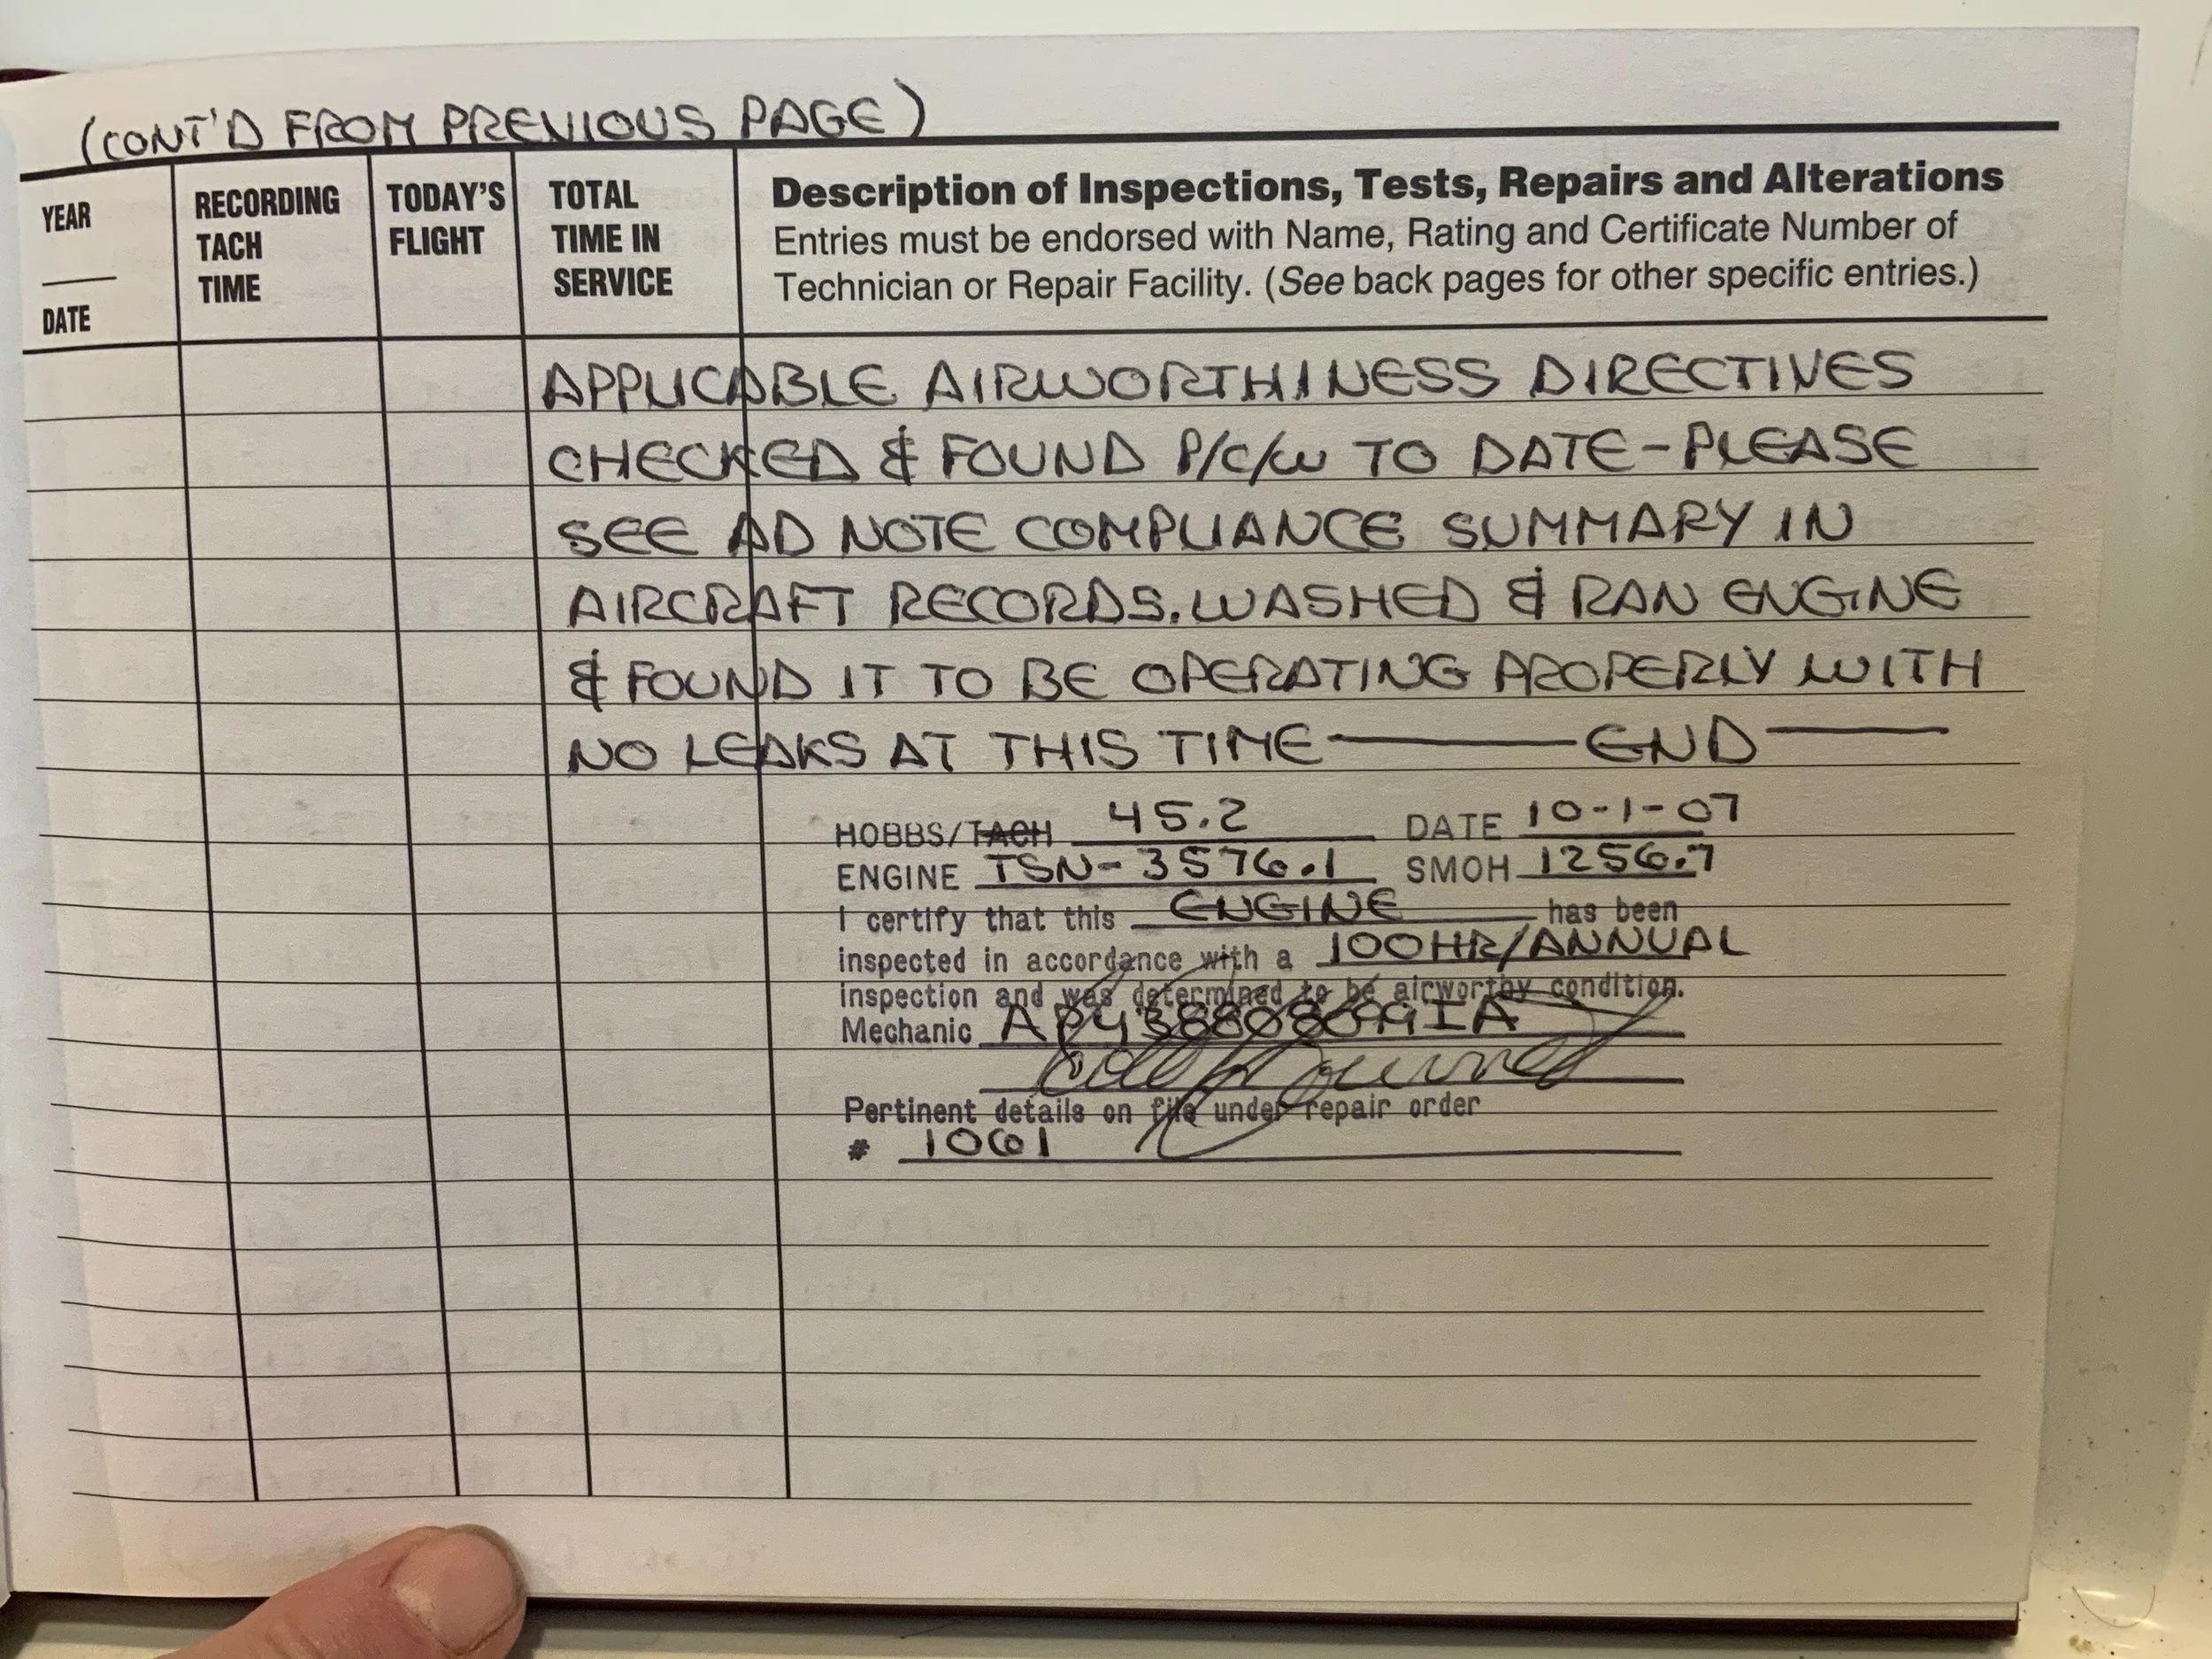 (CONT'D FROM PREVIOUS PAGE)
YEAR
DATE
RECORDING
TACH
TIME
TODAY'S
FLIGHT
TOTAL
TIME IN
SERVICE
Description of Inspections, Tests, Repairs and Alterations
Entries must be endorsed with Name, Rating and Certificate Number of
Technician or Repair Facility. (See back pages for other specific entries.)
APPLICABLE AIRWORTHINESS DIRECTIVES
CHECKED & FOUND P/C/W TO DATE-PLEASE
SEE AD NOTE COMPLIANCE SUMMARY IN
AIRCRAFT RECORDS. WASHED & RAN ENGINE
& FOUND IT TO BE OPERATING PROPERLY WITH
NO LEAKS AT THIS TIME — END —
HOBBS/TACH 45.2 DATE 10-1-07
ENGINE TSN-3576.1 SMOH 1256.7
I certify that this ENGINE has been
inspected in accordance with a 100HR/ANNUAL
inspection and was determined to be airworthy condition.
Mechanic
Pertinent details on file under repair order
# 1061